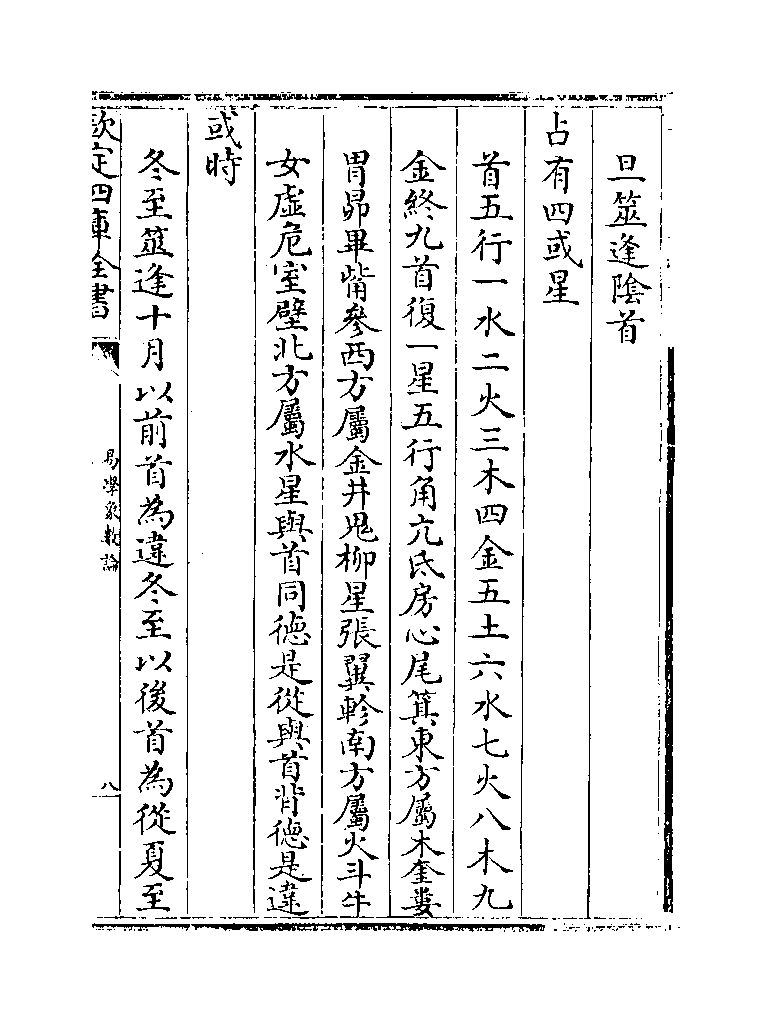 旦筮逢陰首
占有四或星
首五行一水二火三木四金五土六水七火八木九
金終九首復一星五行角亢氐房心尾箕東方屬木奎婁
胃昴畢觜參西方屬金井鬼柳星張翼軫南方屬火斗牛
女虛危室壁北方屬水星與首同德是從與首背德是違
或時
冬至筮逢十月以前首為違冬至以後首為從夏至
欽定四庫全書
易學象數論
八